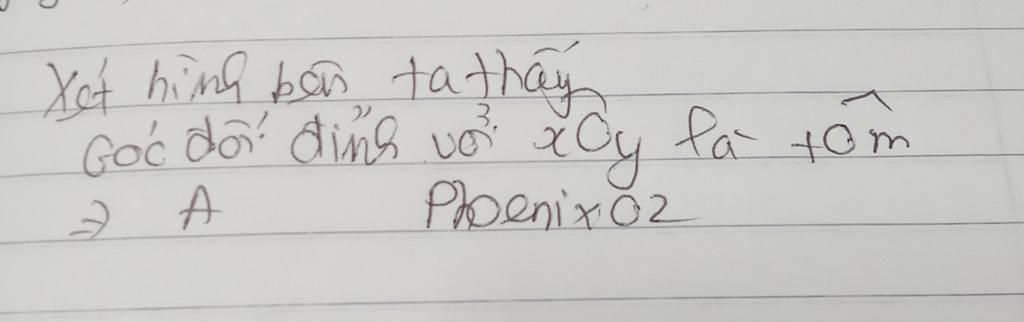 Xét hình bên ta thấy
Góc đối đỉnh với xOy là tOm
=> A Phoenix02